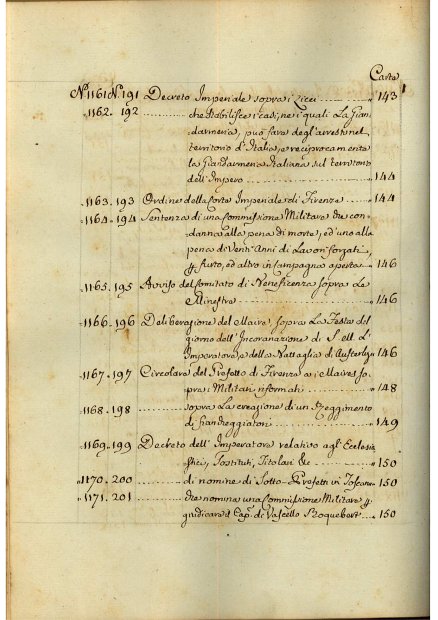 Carte
N.° 1161 N.° 191 Decreto Imperiale sopra i Licei ......... " 143
" 1162. 192 ......... che stabilisce i casi, nei quali La Gian-
darmeria, può fare degl'arresti nel
territorio d'Italia, e reciprocamente
la Giandarmeria Italiana sul territorio
dell'Impero ......... " 144
" 1163. 193 Ordine della Corte Imperiale di Firenze ......... " 144
" 1164. 194 Sentenza di una Commissione Militare che con-
danna alla pena di morte, ed uno alla
pena di Venti Anni di Lavori forzati,
furto, ed altro in Campagna aperta ......... " 146
" 1165. 195 Avviso del Comitato di Beneficenza sopra Le
Minestre ......... " 146
" 1166. 196 Deliberazione del Maire, sopra La Festa del
giorno dell'Incoronazione di S. M. L'
Imperatore, e della Battaglia di Austerliz " 146
" 1167. 197 Circolare del Prefetto di Firenze ai Maires so-
pra i Militari riformati ......... " 148
" 1168. 198 ......... sopra La creazione di un Reggimento
di Fiancheggiatori ......... " 149
" 1169. 199 Decreto dell'Imperatore relativo agl'Ecclesia-
stici, Sostituti, Titolari &c ......... " 150
" 1170. 200 ......... di nomine di Sotto-Prefetti in Toscana " 150
" 1171. 201 ......... che nomina una Commissione Militare
giudicare il Cap. di Vascello Roquebert ... " 150